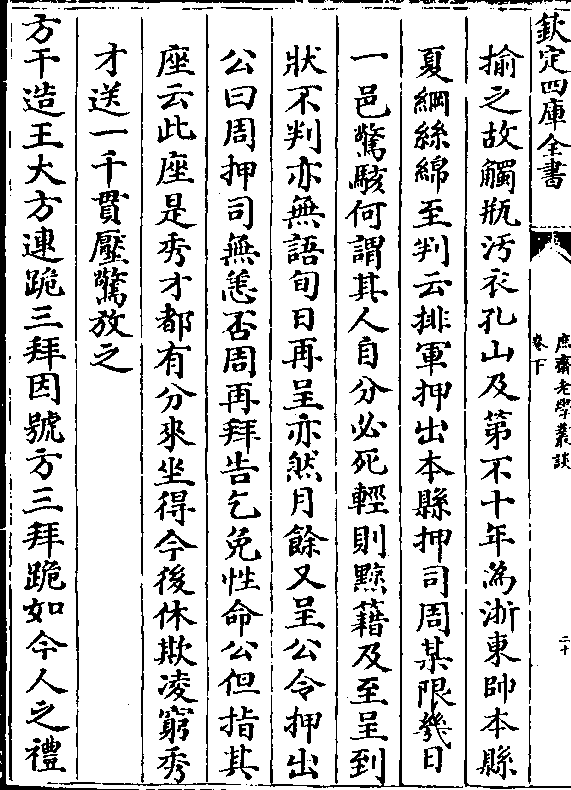 欽定四庫全書
庶齋老學叢談
卷下
二十
揄之故觸瓶汚衣孔山及第不十年為浙東帥本縣
夏綱絲綿至判云排軍押出本縣押司周某限幾日
一邑驚駭何謂其人自分必死輕則黥籍及至呈到
狀不判亦無語旬日再呈亦然月餘又呈公令押出
公曰周押司無恙否周再拜告乞免性命公但指其
座云此座是秀才都有分來坐得今後休欺凌窮秀
才送一千貫壓驚放之
方干造王大方連跪三拜因號方三拜跪如今人之禮